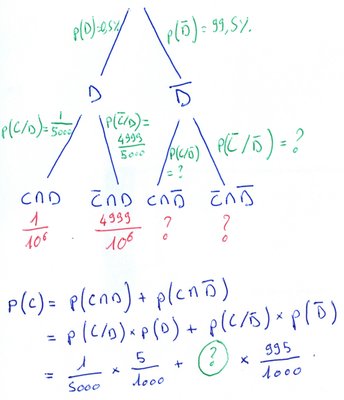 p(D)=0,5% p(D̅)=99,5%
D D̅
p(C/D)=1/5000 p(C̅/D)=4999/5000 p(C/D̅)=? p(C̅/D̅)=?
C∩D C̅∩D C∩D̅ C̅∩D̅
1/10⁶ 4999/10⁶ ? ?
p(C)= p(C∩D) + p(C∩D̅)
= p(C/D)×p(D) + p(C/D̅)×p(D̅)
= 1/5000 × 5/1000 + ? × 995/1000.